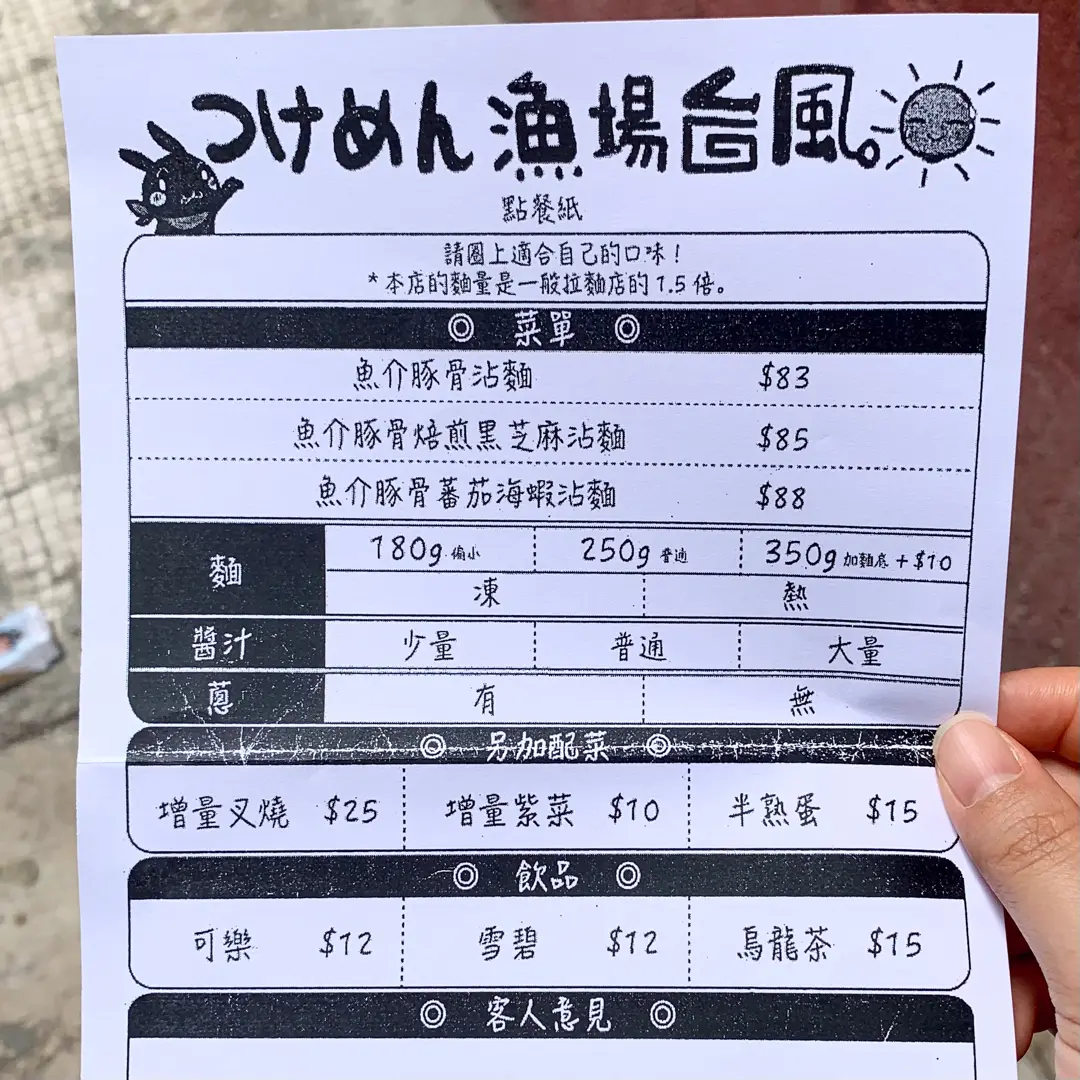 つけめん漁場台風。
點餐紙
請圈上適合自己的口味！
*本店的麵量是一般拉麵店的1.5倍。
◎ 菜單 ◎
魚介豚骨沾麵 $83
魚介豚骨焙煎黑芝麻沾麵 $85
魚介豚骨蕃茄海蝦沾麵 $88
麵 180g 偏小 250g 普通 350g 加麵底 +$10
凍 熱
醬汁 少量 普通 大量
蔥 有 無
◎ 另加配菜 ◎
增量叉燒 $25 增量紫菜 $10 半熟蛋 $15
◎ 飲品 ◎
可樂 $12 雪碧 $12 烏龍茶 $15
◎ 客人意見 ◎